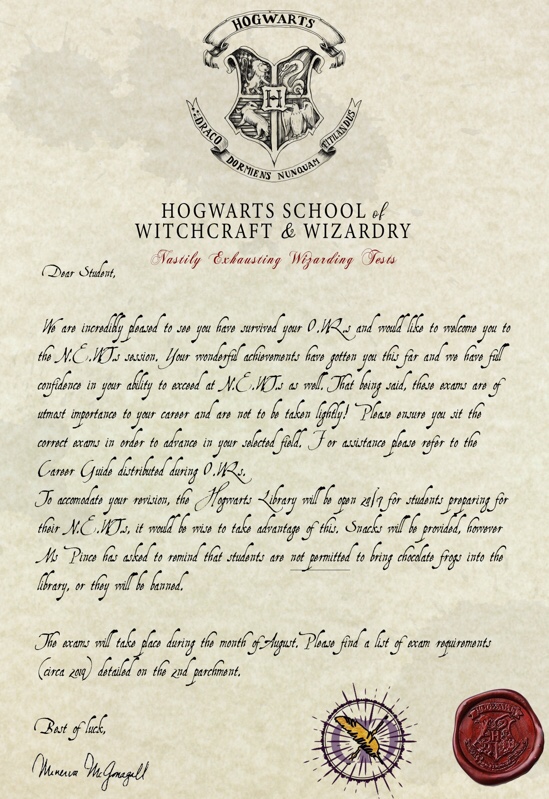 HOGWARTS
DRACO DORMIENS NUNQUAM TITILLANDUS
HOGWARTS SCHOOL of
WITCHCRAFT & WIZARDRY
Nastily Exhausting Wizarding Tests
Dear Student,
We are incredibly pleased to see you have survived your O.W.L.s and would like to welcome you to
the N.E.W.T.s session. Your wonderful achievements have gotten you this far and we have full
confidence in your ability to exceed at N.E.W.T.s as well. That being said, these exams are of
utmost importance to your career and are not to be taken lightly! Please ensure you sit the
correct exams in order to advance in your selected field. For assistance please refer to the
Career Guide distributed during O.W.L.s.
To accomodate your revision, the Hogwarts Library will be open 24/7 for students preparing for
their N.E.W.T.s, it would be wise to take advantage of this. Snacks will be provided, however
Ms Pince has asked to remind that students are not permitted to bring chocolate frogs into the
library, or they will be banned.
The exams will take place during the month of August. Please find a list of exam requirements
(circa 2019) detailed on the 2nd parchment.
Best of luck,
Minerva McGonagall
HOGWARTS